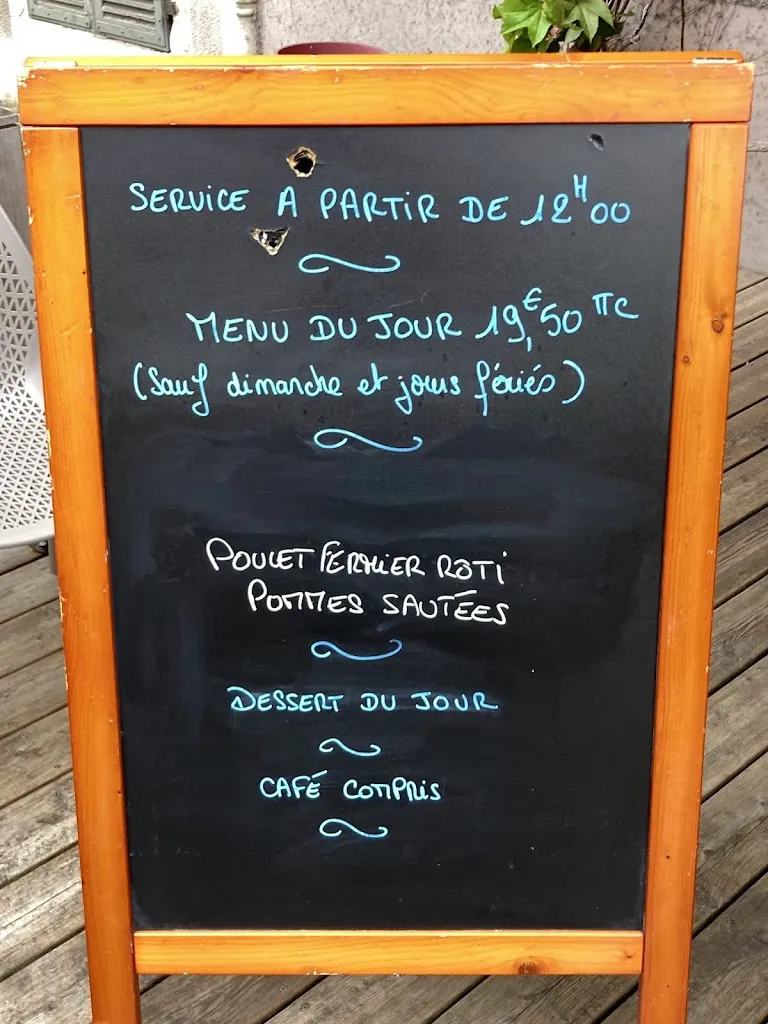 SERVICE A PARTIR DE 12H00
MENU DU JOUR 19,€50 TTC
(Sauf dimanche et jours fériés)
POULET FERMIER ROTI
POMMES SAUTÉES
DESSERT DU JOUR
CAFÉ COMPRIS